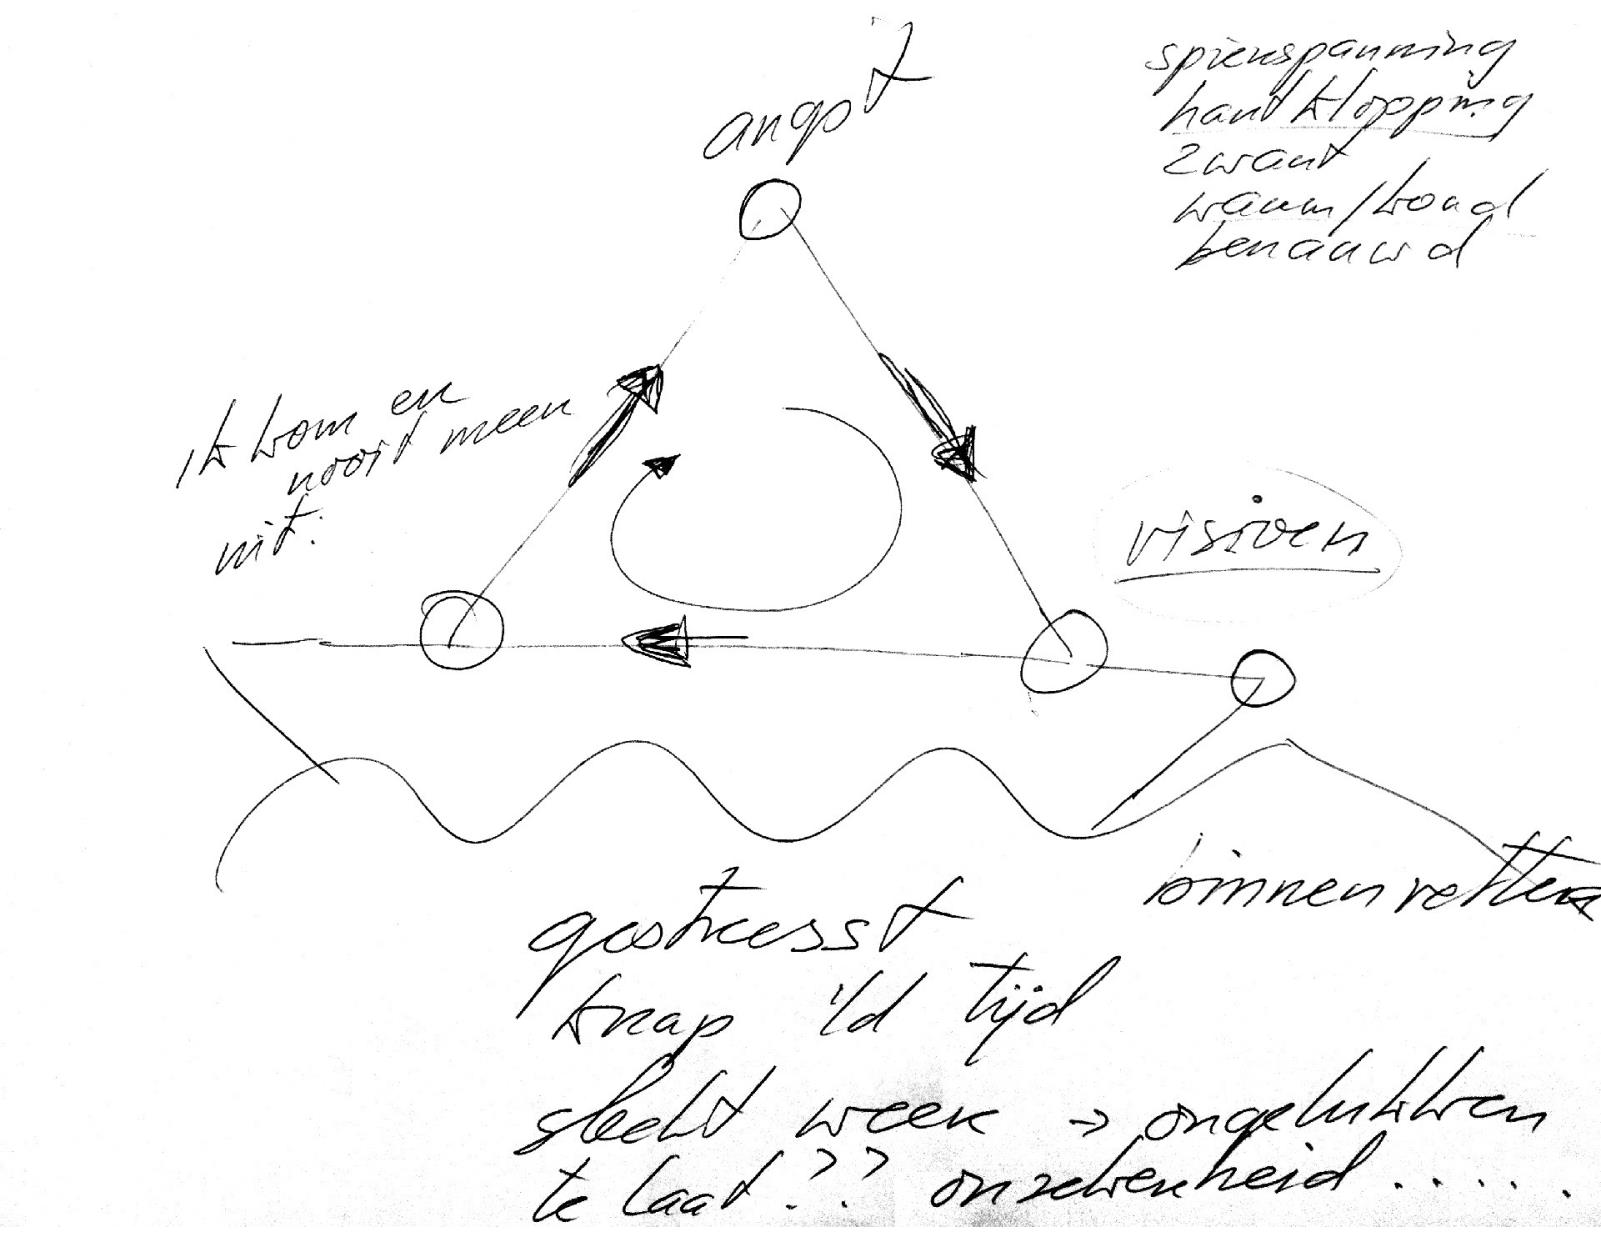 angst
spierspanning
hartklopping
zwart
warm/koud
benauwd
ik kom er
nooit meer
uit.
visioen
binnenvetter
gestresst
knap i/d tijd
slecht weer → ongelukken
te laat?? onzekerheid.....